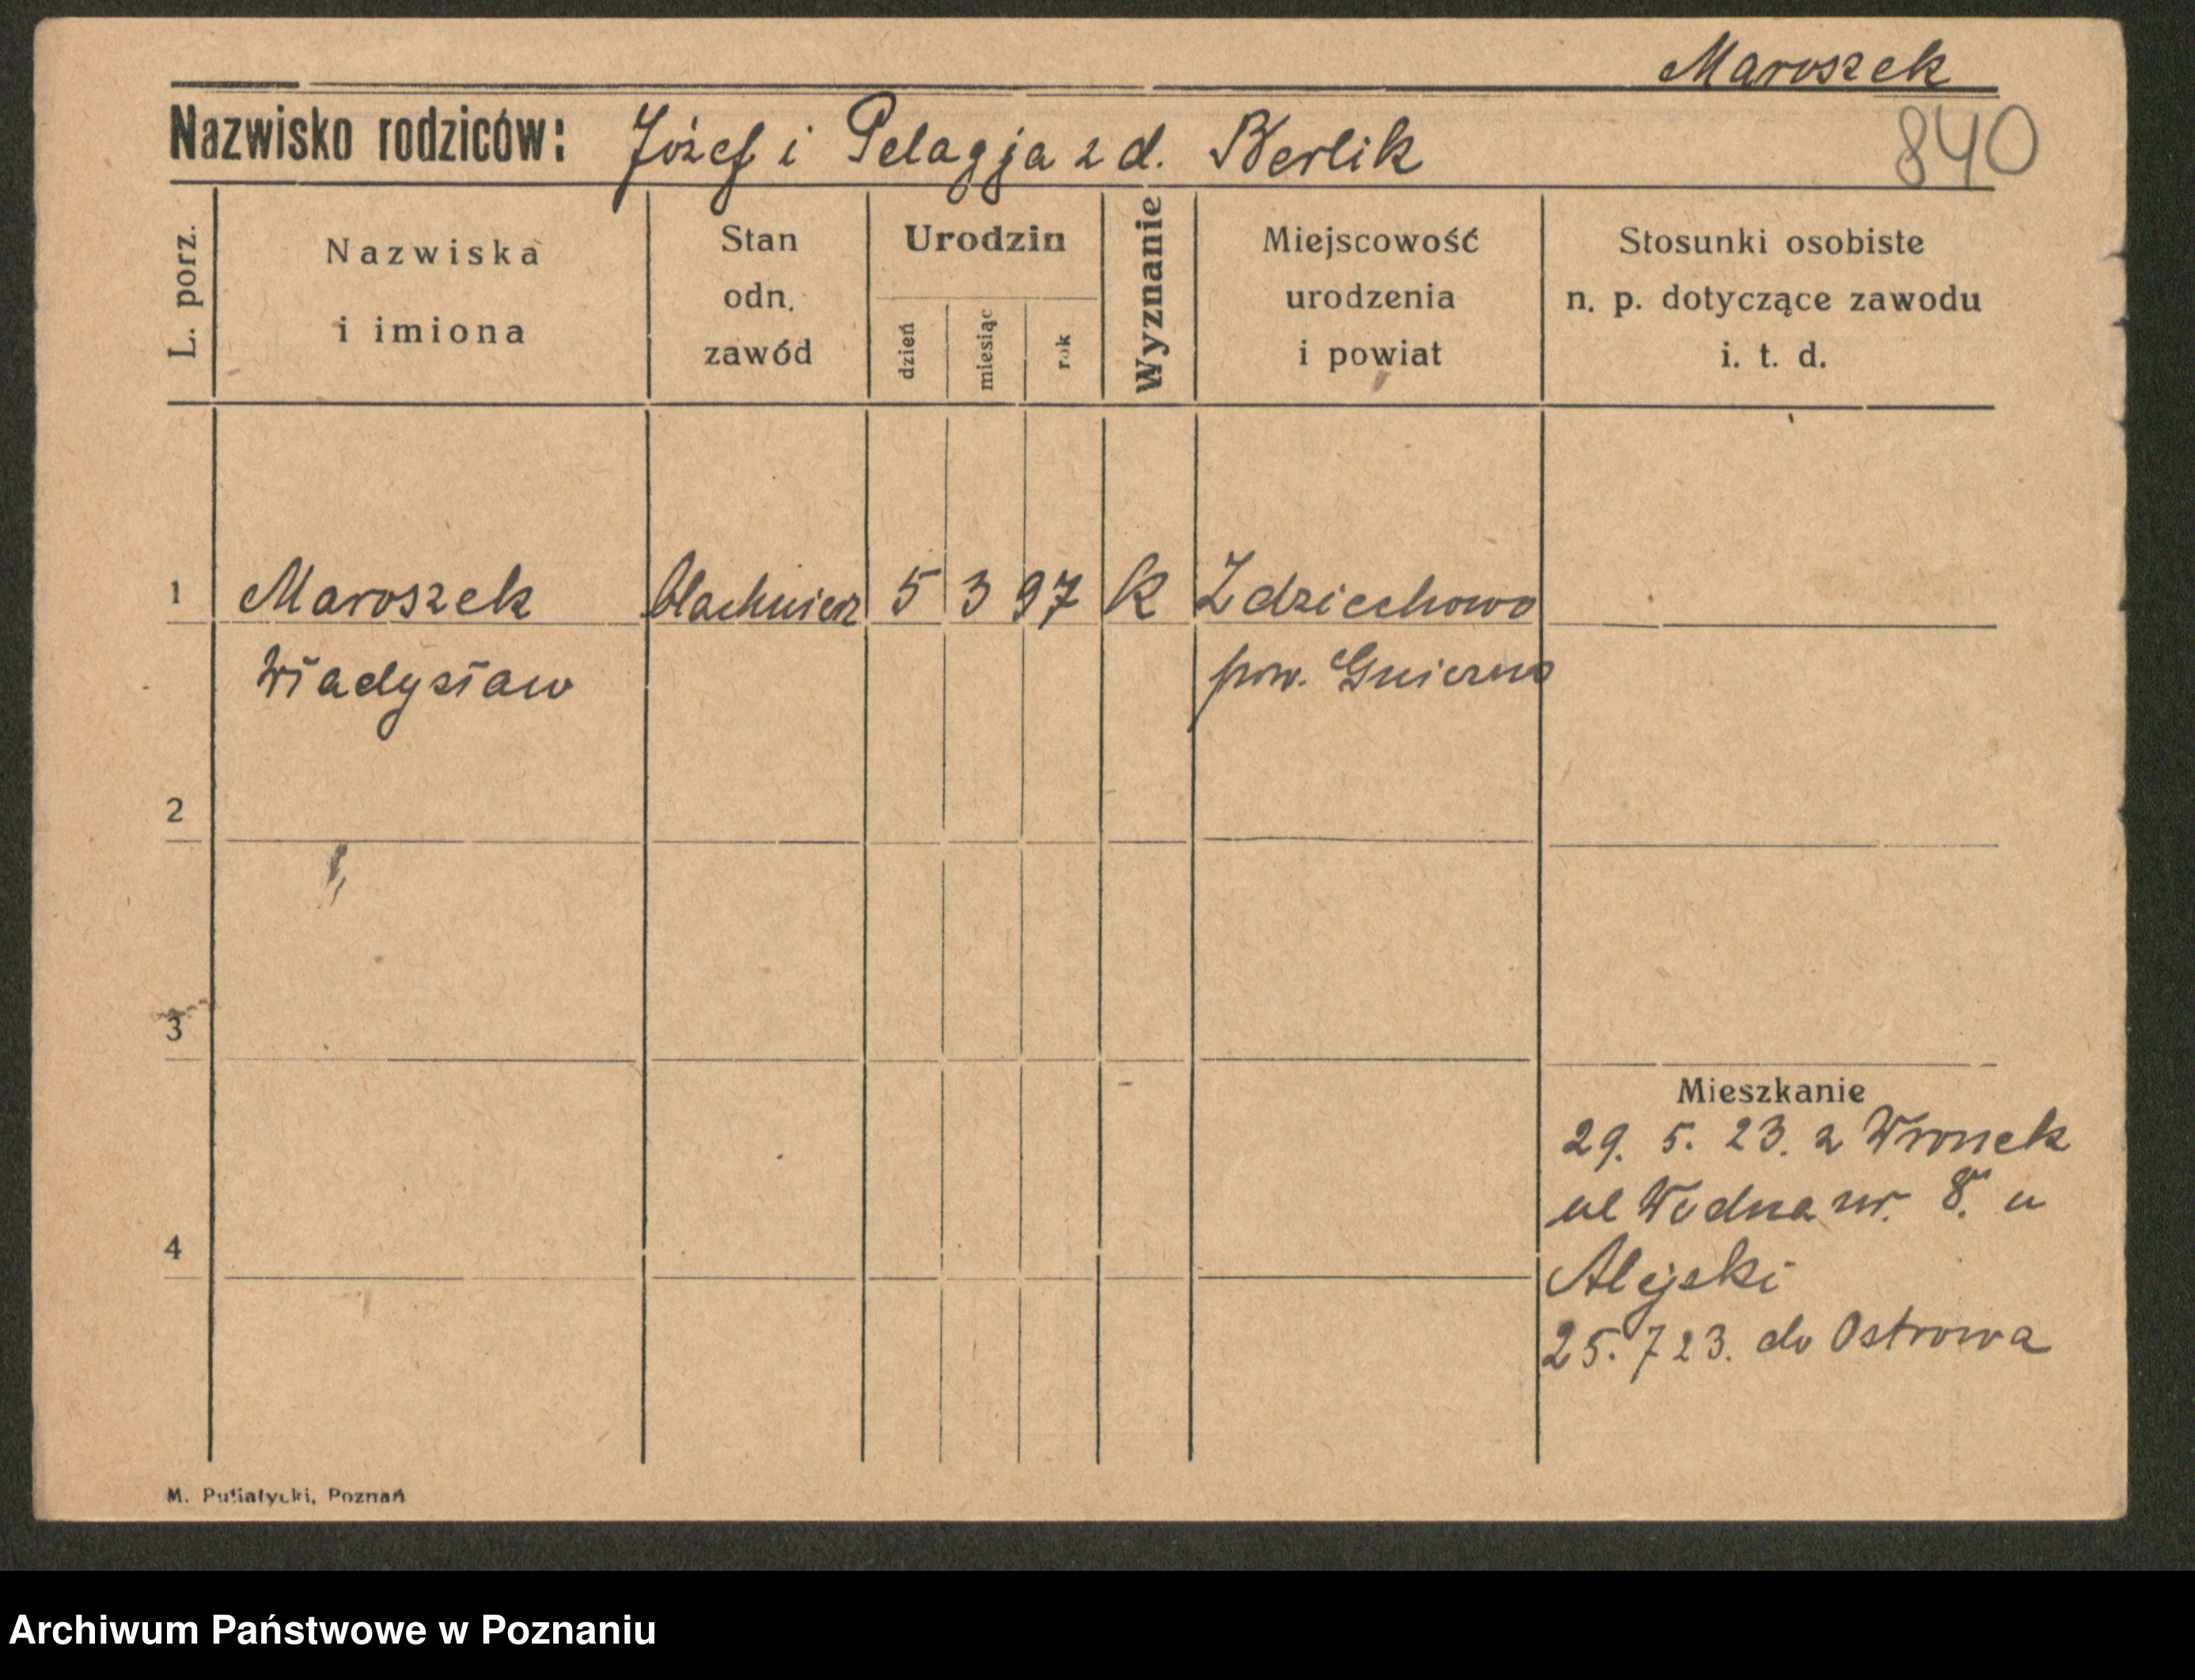 Maroszek
Nazwisko rodziców: Józef i Pelagja z d. Berlik
840
L. porz.
Nazwiska
i imiona
Stan
odn.
zawód
Urodzin
dzień
miesiąc
rok
Wyznanie
Miejscowość
urodzenia
i powiat
Stosunki osobiste
n. p. dotyczące zawodu
i. t. d.
1 Maroszek blachnierz 5 3 97 K Zdziechowo
Władysław pow. Gniezno
2
3
Mieszkanie
29. 5. 23. z Wronek
ul Wodna nr. 8. u
4
Alejski
25. 7 23. do Ostrowa
M. Putiatycki, Poznań
Archiwum Państwowe w Poznaniu